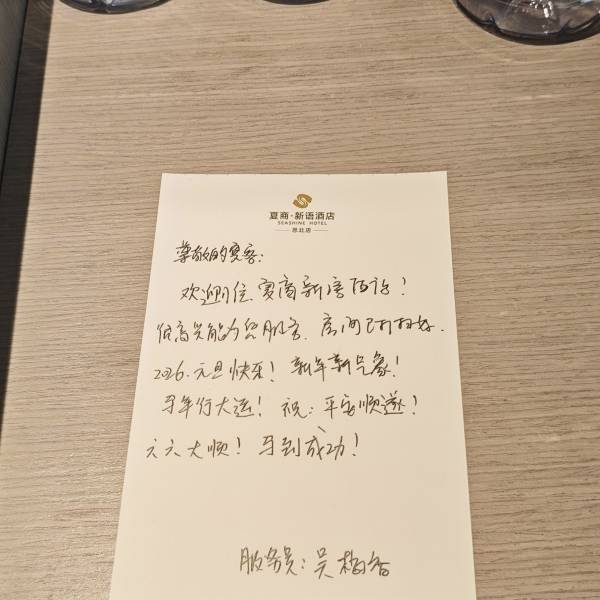 夏商·新语酒店
SEASHINE HOTEL
思北店
尊敬的宾客:
欢迎入住夏商新语酒店!
很高兴能为您服务,房间已打扫好.
2026.元旦快乐! 新年新气象!
马年行大运! 祝:平安顺遂!
六六大顺! 马到成功!
服务员:吴梅香